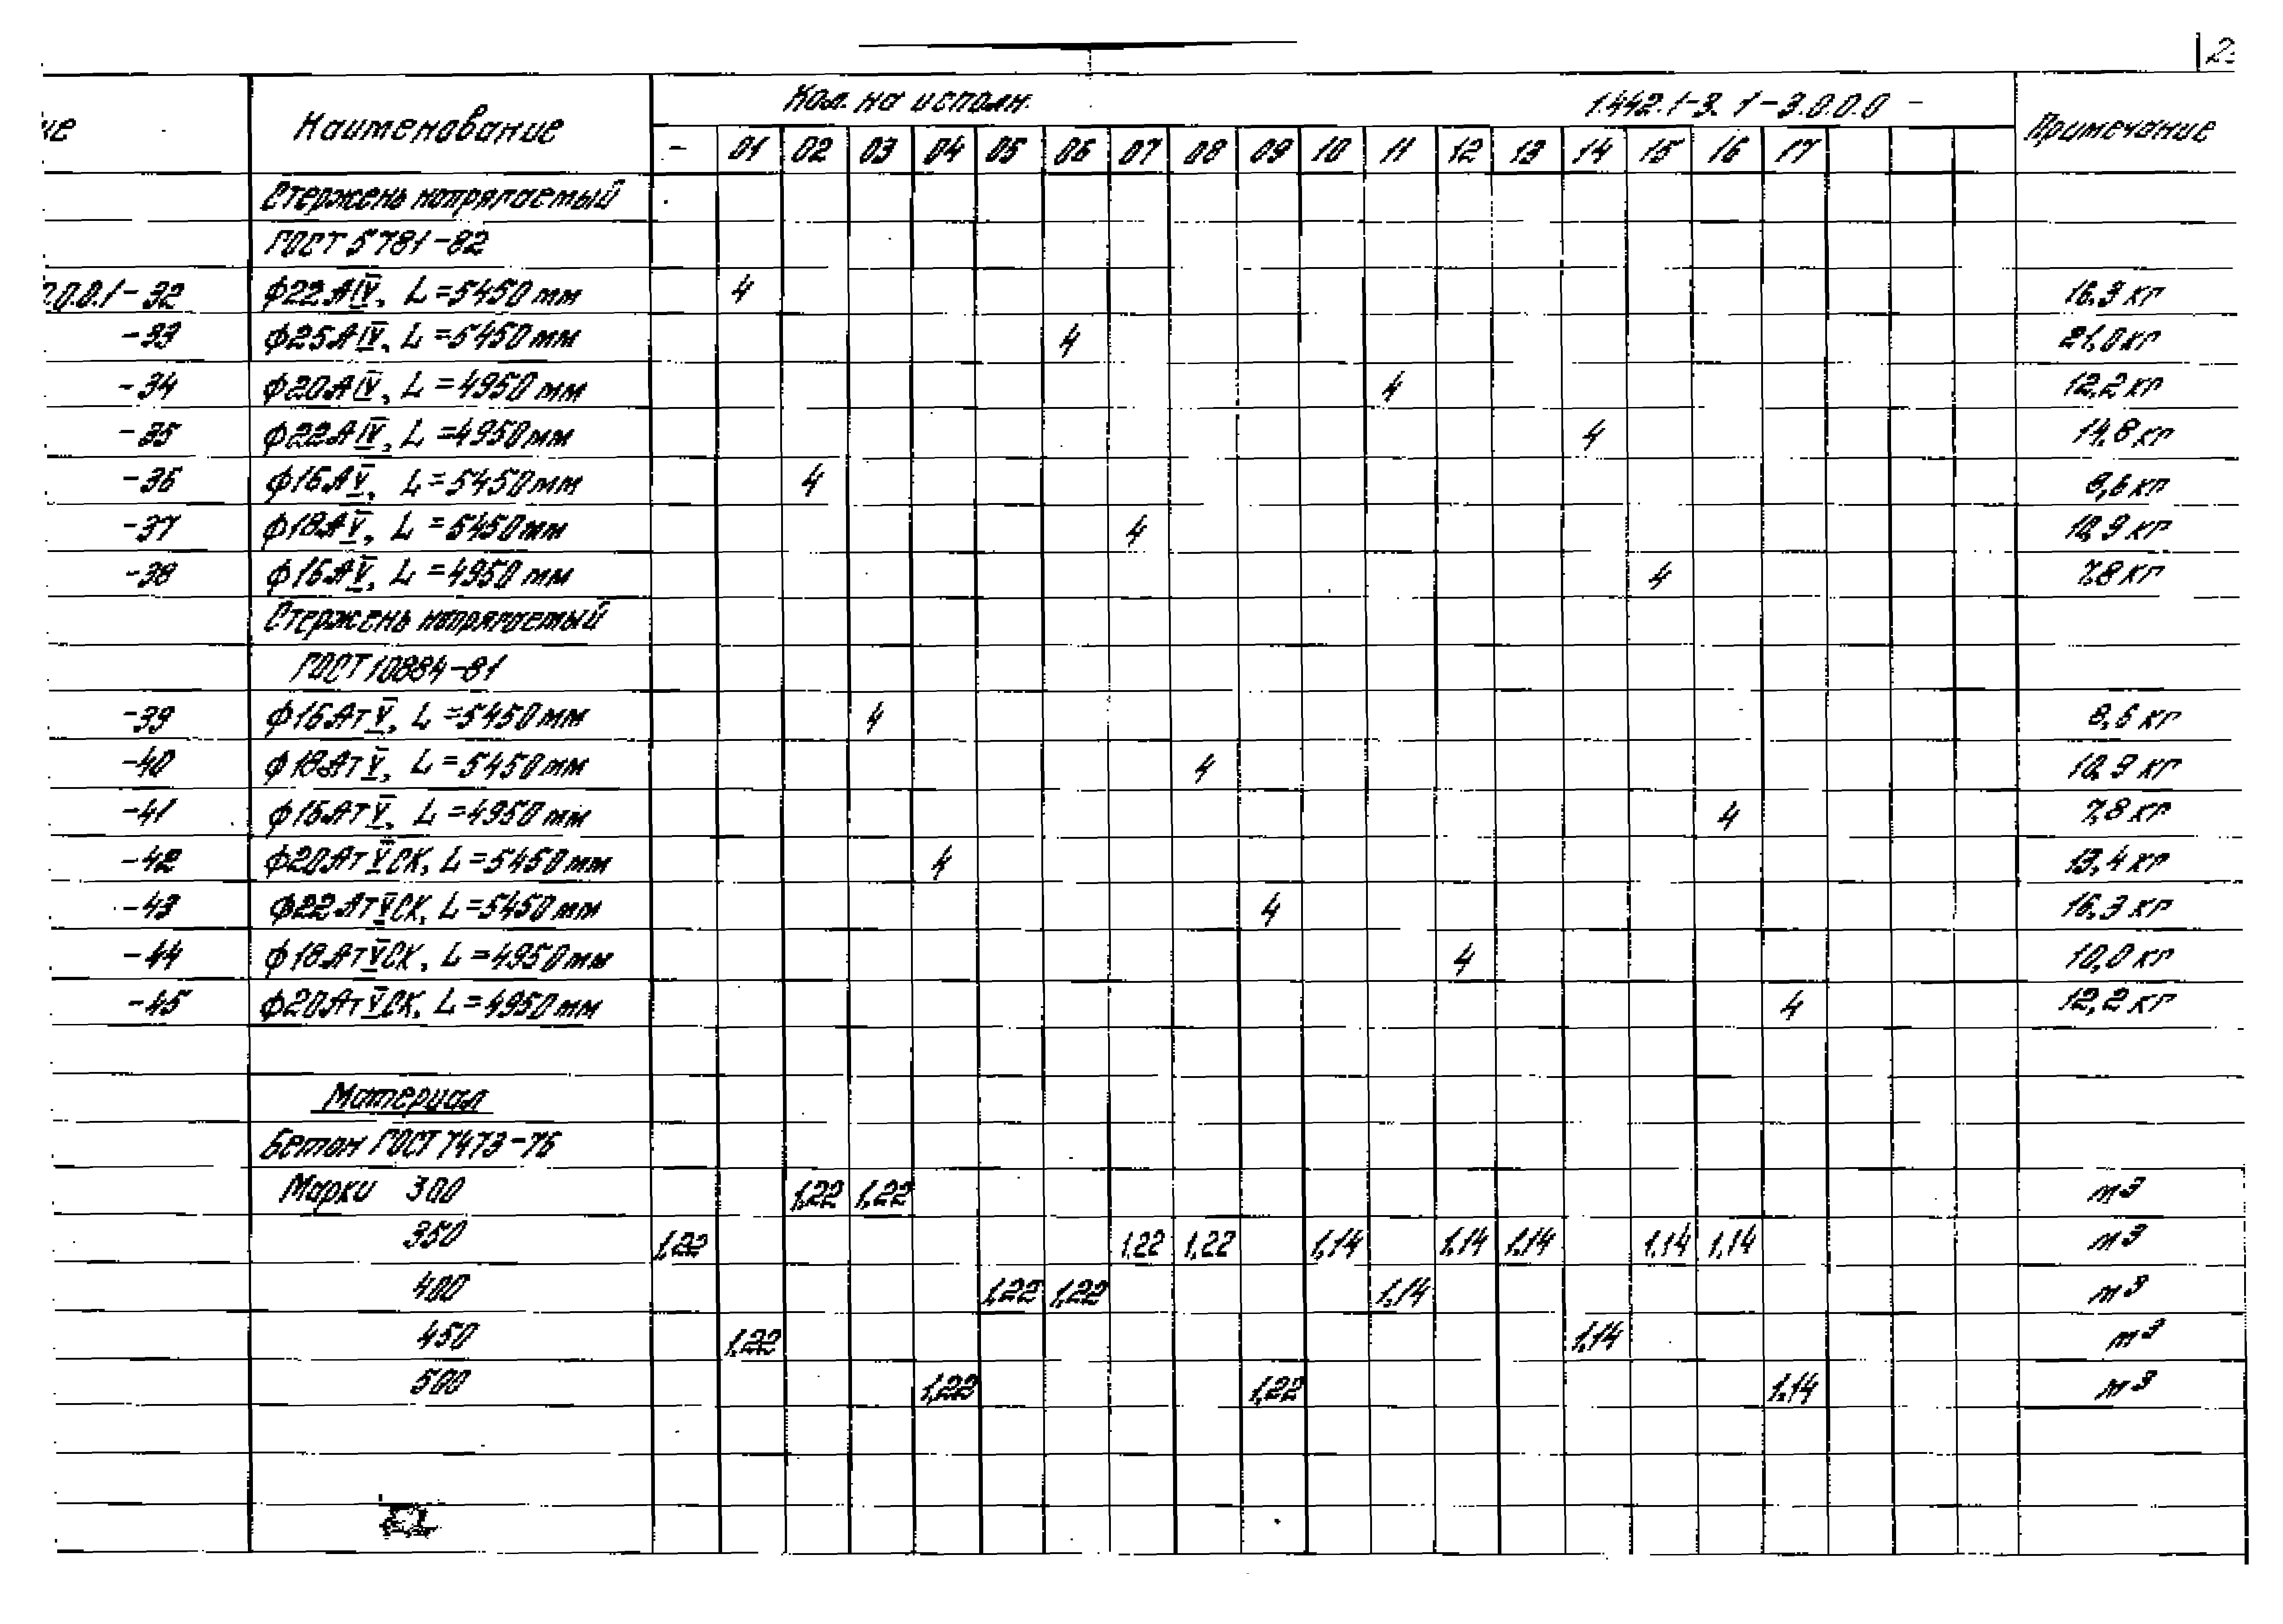 2
ие Наименование Кол. на исполн. 1.442.1-3. 1-3.0.0.0 - Примечание
- 01 02 03 04 05 06 07 08 09 10 11 12 13 14 15 16 17
Стержень напрягаемый
ГОСТ 5781-82
.0.0.1-32 ϕ22АIV, L=5450мм 4 16.3 кг
-33 ϕ25АIV, L=5450мм 4 21,0кг
-34 ϕ20АIV, L=4950мм 4 12,2 кг
-35 ϕ22АIV, L=4950мм 4 14,8 кг
-36 ϕ16АV, L=5450мм 4 8,6 кг
-37 ϕ18АV, L=5450мм 4 10,9 кг
-38 ϕ16АV, L=4950 мм 4 7,8 кг
Стержень напрягаемый
ГОСТ 10884-81
-39 ϕ16АтV, L=5450мм 4 8,6 кг
-40 ϕ18АтV, L=5450мм 4 10,9 кг
-41 ϕ16АтV, L=4950мм 4 7,8 кг
-42 ϕ20АтVСК, L=5450мм 4 13,4 кг
-43 ϕ22АтVСК, L=5450мм 4 16,3 кг
-44 ϕ18АтVСК, L=4950мм 4 10,0 кг
-45 ϕ20АтVСК, L=4950мм 4 12,2 кг
Материал
Бетон ГОСТ 7473-76
Марки 300 1,22 1,22 м3
350 1,22 1,22 1,22 1,14 1,14 1,14 1,14 1,14 м3
400 1,22 1,22 1,14 м3
450 1,22 1,14 м3
500 1,22 1,22 1,14 м3